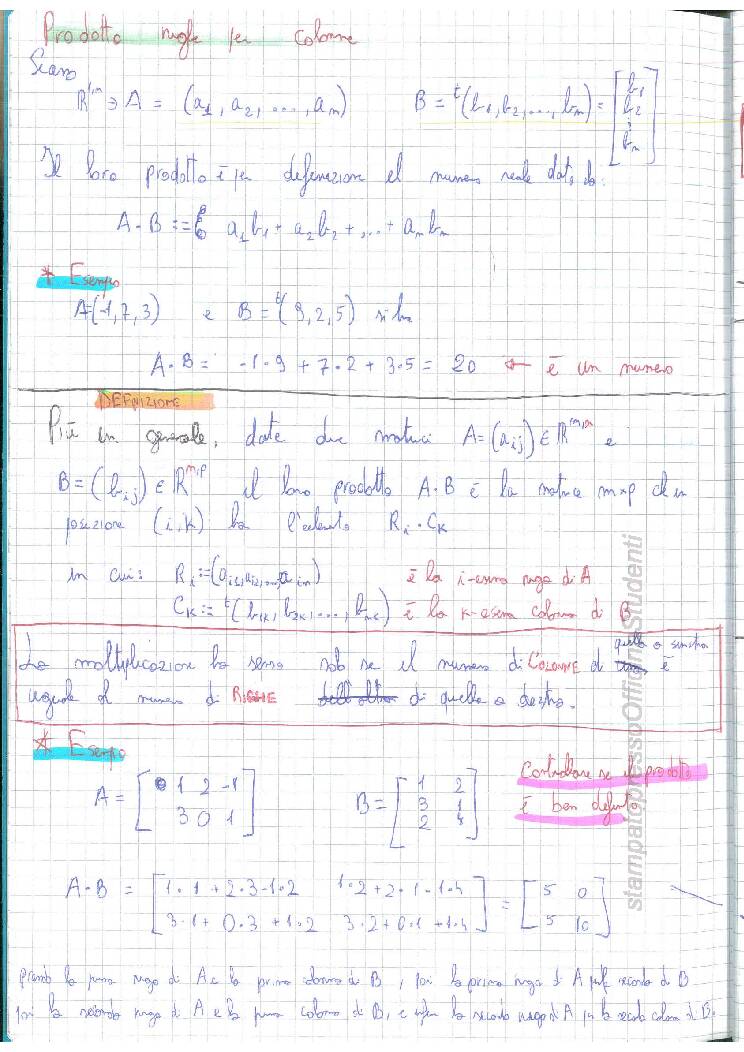 Prodotto righe per colonne
Siano
R^{1,n} ∋ A = (a_1, a_2, ..., a_n)   B = ^t(b_1, b_2, ..., b_n) = [b_1 b_2 ⋮ b_n]
Il loro prodotto è per definizione il numero reale dato da:
A·B := a_1b_1 + a_2b_2 + ... + a_nb_n
* Esempio
A=(-1,7,3) e B = ^t(9,2,5) si ha
A·B = -1·9 + 7·2 + 3·5 = 20 ← è un numero
DEFINIZIONE
Più in generale, date due matrici A = (a_ij) ∈ R^{m,n} e
B = (b_ij) ∈ R^{n,p} il loro prodotto A·B è la matrice m×p che in
posizione (i,k) ha l'elemento R_i · C_k
in cui: R_i := (a_i1, a_i2, ..., a_in) è la i-esima riga di A
C_k := ^t(b_1k, b_2k, ..., b_nk) è la k-esima colonna di B
La moltiplicazione ha senso solo se il numero di COLONNE di quella a sinistra è
uguale al numero di RIGHE di quella a destra.
* Esempio
A = [1 2 -1; 3 0 1]   B = [1 2; 3 1; 2 4]   Controllare se il prodotto
è ben definito
A·B = [1·1+2·3-1·2   1·2+2·1-1·4; 3·1+0·3+1·2   3·2+0·1+1·4] = [5 0; 5 10]
prendo la prima riga di A e la prima colonna di B, poi la prima riga di A per la seconda di B
poi la seconda riga di A e la prima colonna di B, e infine la seconda riga di A per la seconda colonna di B.
stampatopressoOfficinaStudenti